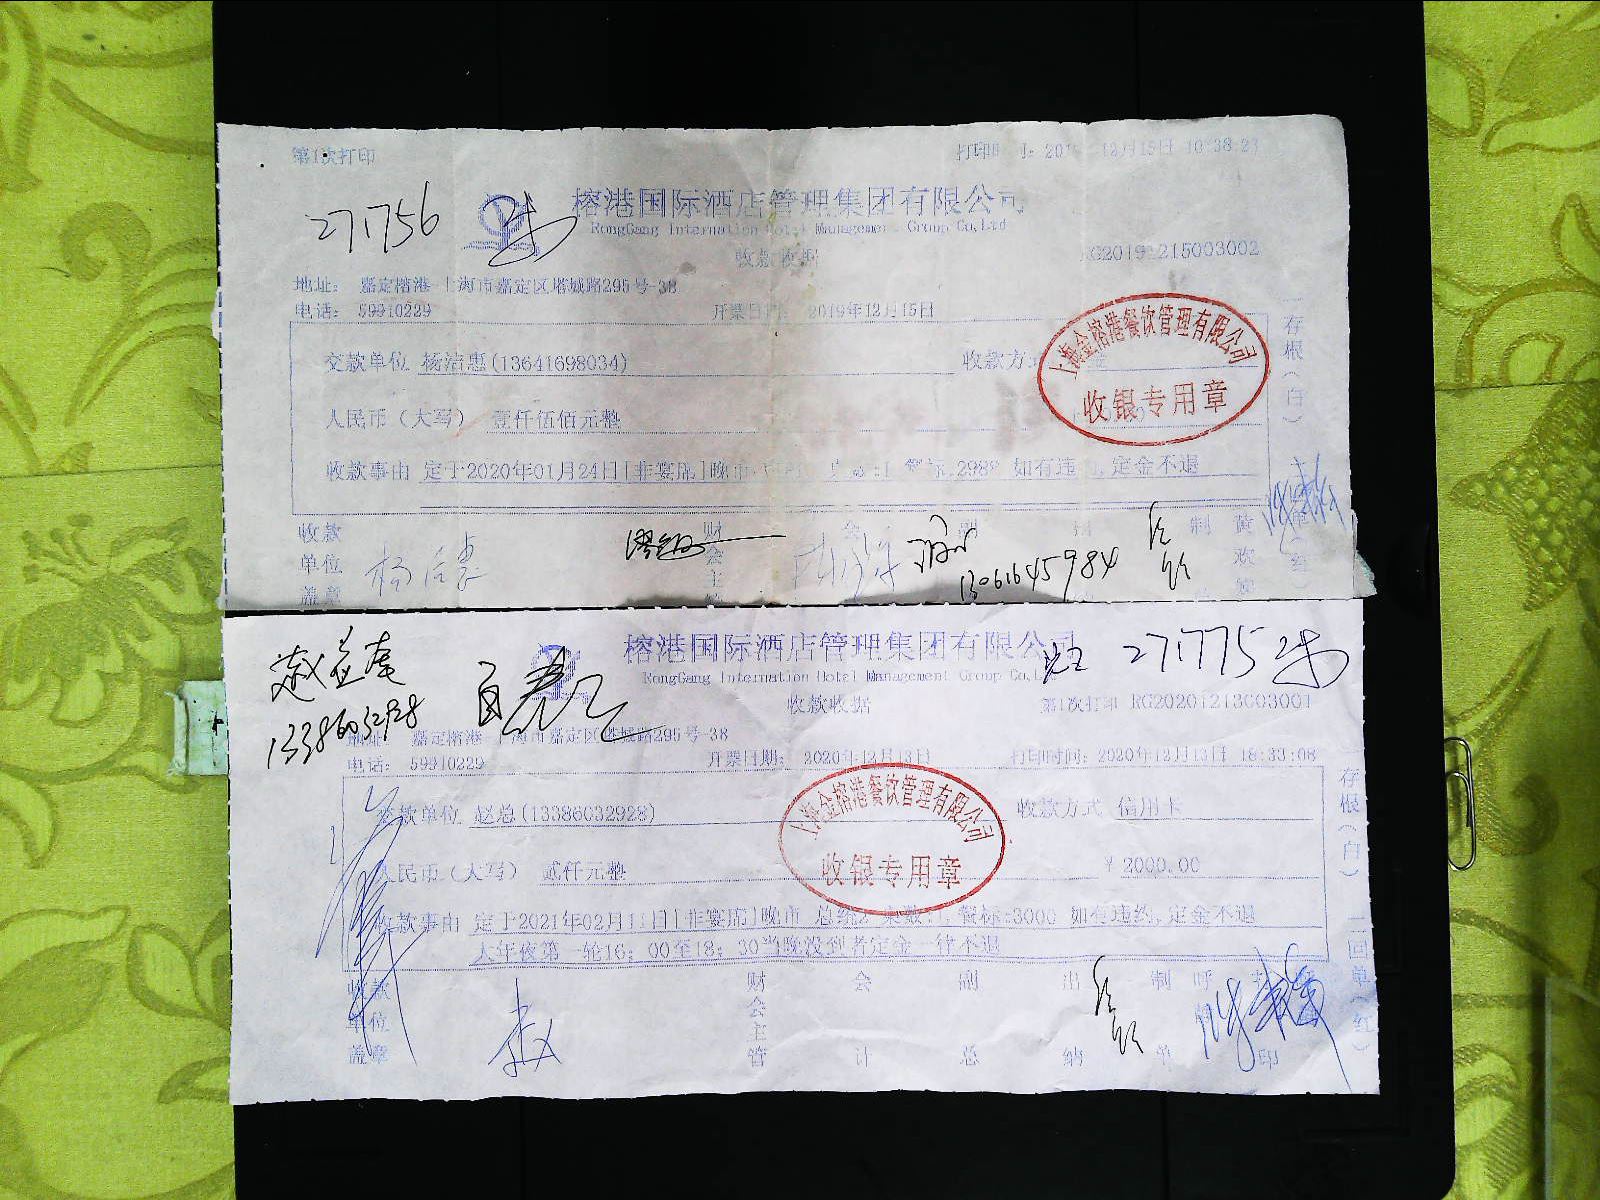 第1次打印
12月15日 10:38:23
271756
榕港国际酒店管理集团有限公司
RongGang Internation Hotel Management Group Co,Ltd
收款收据
215003002
地址： 嘉定榕港 上海市嘉定区塔城路295号-38
电话： 59910229
开票日期： 2019年12月15日
交款单位 杨洁惠(13641698034)
收款方式
人民币（大写） 壹仟伍佰元整
上海金榕港餐饮管理有限公司
收银专用章
收款事由 定于2020年01月24日[非宴席]晚市 如有违约,定金不退
存根（白）
收款单位盖章
财会主管
会
副
制
13061645984
榕港国际酒店管理集团有限公司
RongGang Internation Hotel Management Group Co,Ltd
271775
13386032928
收款收据
第1次打印 RG20201213003001
地址： 嘉定榕港 上海市嘉定区塔城路295号-38
电话： 59910229
开票日期： 2020年12月13日
打印时间：2020年12月13日 18:33:08
交款单位 赵总(13386032928)
收款方式 信用卡
人民币（大写） 贰仟元整
￥2000.00
上海金榕港餐饮管理有限公司
收银专用章
收款事由 定于2021年02月11日[非宴席]晚市 餐标:3000 如有违约,定金不退
大年夜第一轮16：00至18：30当晚没到者定金一律不退
存根（白） 二回单（红）
收款单位盖章
赵
财会主管
会计
副总
出纳
制单